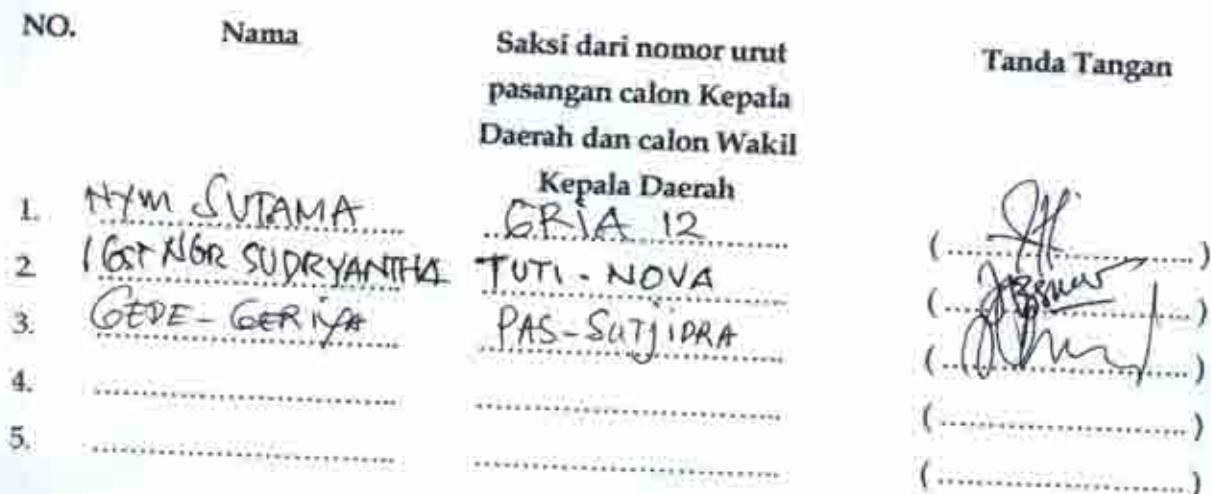 NO. Nama Saksi dari nomor urut Tanda Tangan
pasangan calon Kepala
Daerah dan calon Wakil
Kepala Daerah
1. NYM SUTAMA GRIA 12 (....................)
2 I GST NGR SUDRYANTHA TUTI - NOVA (....................)
3. GEDE - GERIYA PAS - SUTJIDRA (....................)
4. .................... .................... (....................)
5. .................... .................... (....................)